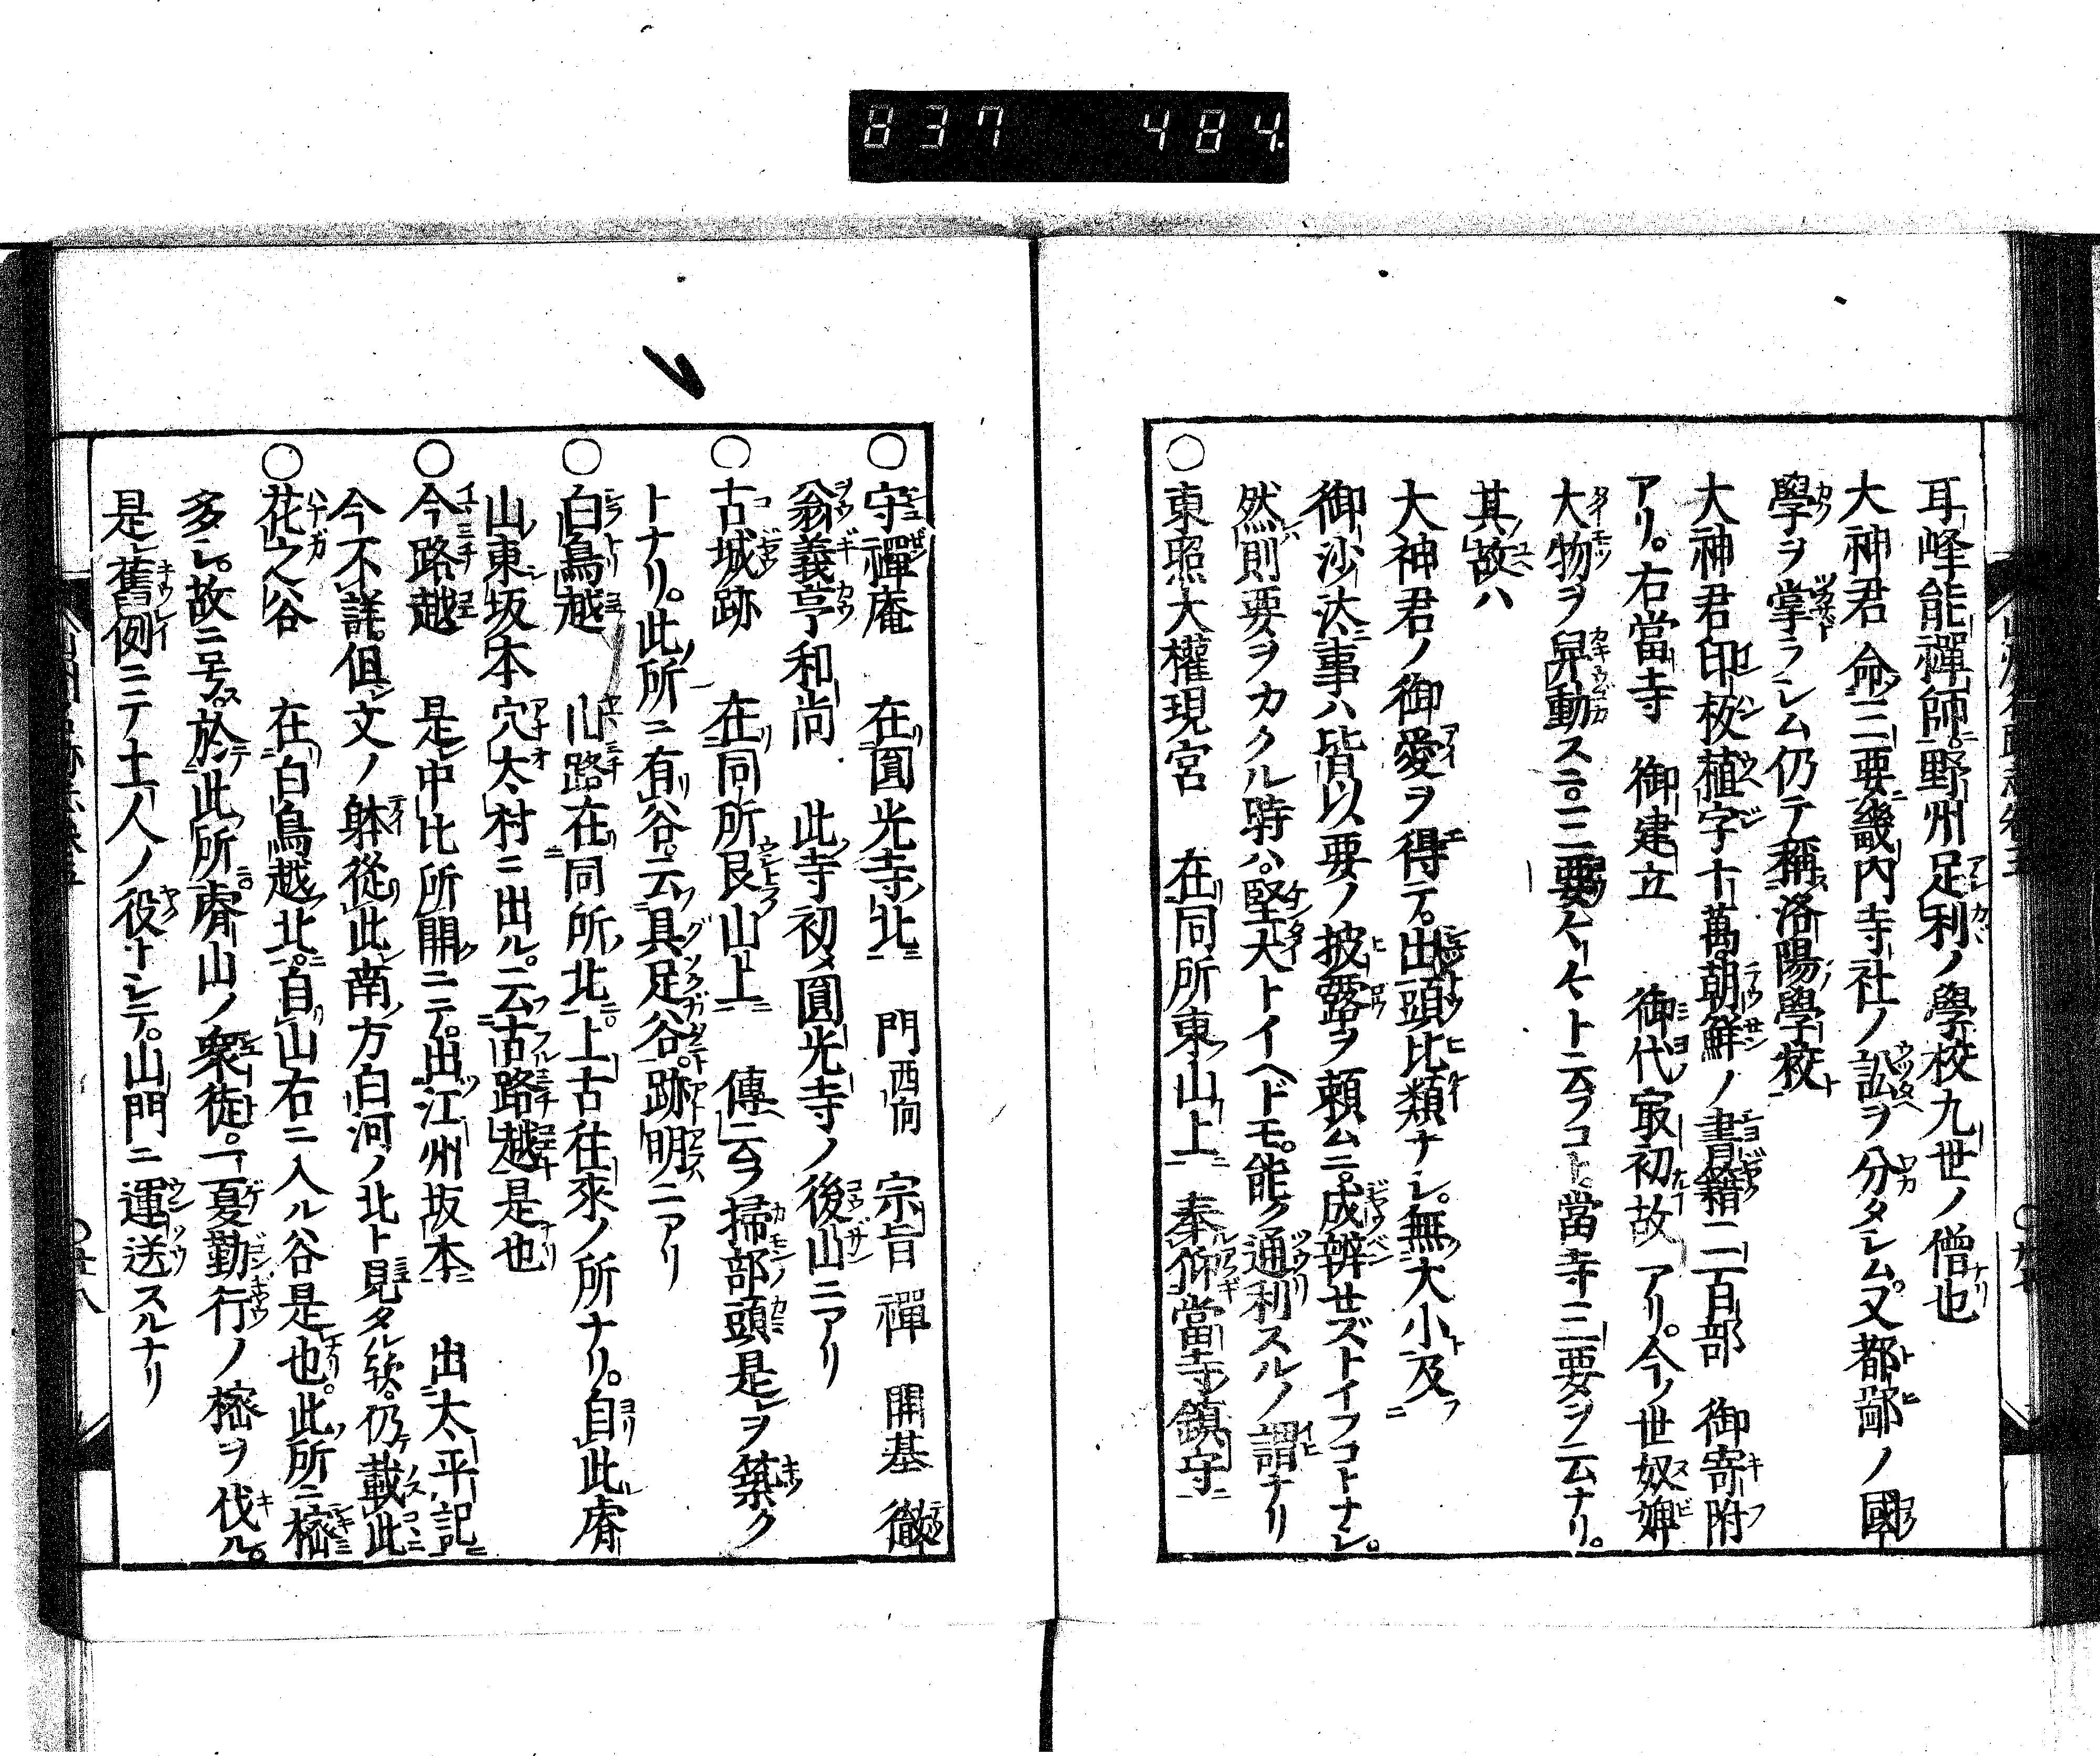 837 484
耳峰能禪師野州足利ノ學校九世ノ僧也
大神君 命三要畿內寺社ノ訟ヲ分タレム又都鄙ノ國
學ヲ掌ラシム仍テ稱洛陽學校
大神君印枚植字十萬朝鮮ノ書籍二百部 御寄附
アリ。右當寺 御建立 御代㝡初故アリ。今ノ世奴婢
大物ヲ舁動スニ。三要ト云フコト。當寺三要ヲ云ナリ。
其故ハ
大神君ノ御愛ヲ得テ。出頭比類ナシ。無大小及
御沙汰事ハ皆以要ノ披露ヲ頼ムニ。成辨セズトイフコトナシ。
然則要ヲカクル時ハ。堅大トイヘドモ。能ク通利スルノ謂ナリ
○東照大權現宮 在同所東山上 奉仰當寺鎮守
○守禪庵 在圓光寺北 門西向 宗旨禪 開基 徹
翁義亨和尚 此寺初メ圓光寺ノ後山ニアリ
○古城跡 在同所艮山上 傳云フ掃部頭是ヲ築ク
トナリ。此所ニ有谷。云具足谷。跡明ニアリ
○白鳥越 山路在同所北。上古往來ノ所ナリ。自此
山東坂本穴太村ニ出ル。云古路越是也
○今路越 是中比所開ニテ。出江州坂本 出太平記
今不詳。但文ノ躰從此南方白河ノ北ト見タル欤。仍載此
○花之谷 在白鳥越北。自山右ニ入ル谷是也。此所ニ樒
多シ。故ニ号ス。於此所山ノ衆徒。一夏勤行ノ樒ヲ伐ル。
是舊例ニテ土人ノ役トシテ。山門ニ運送スルナリ